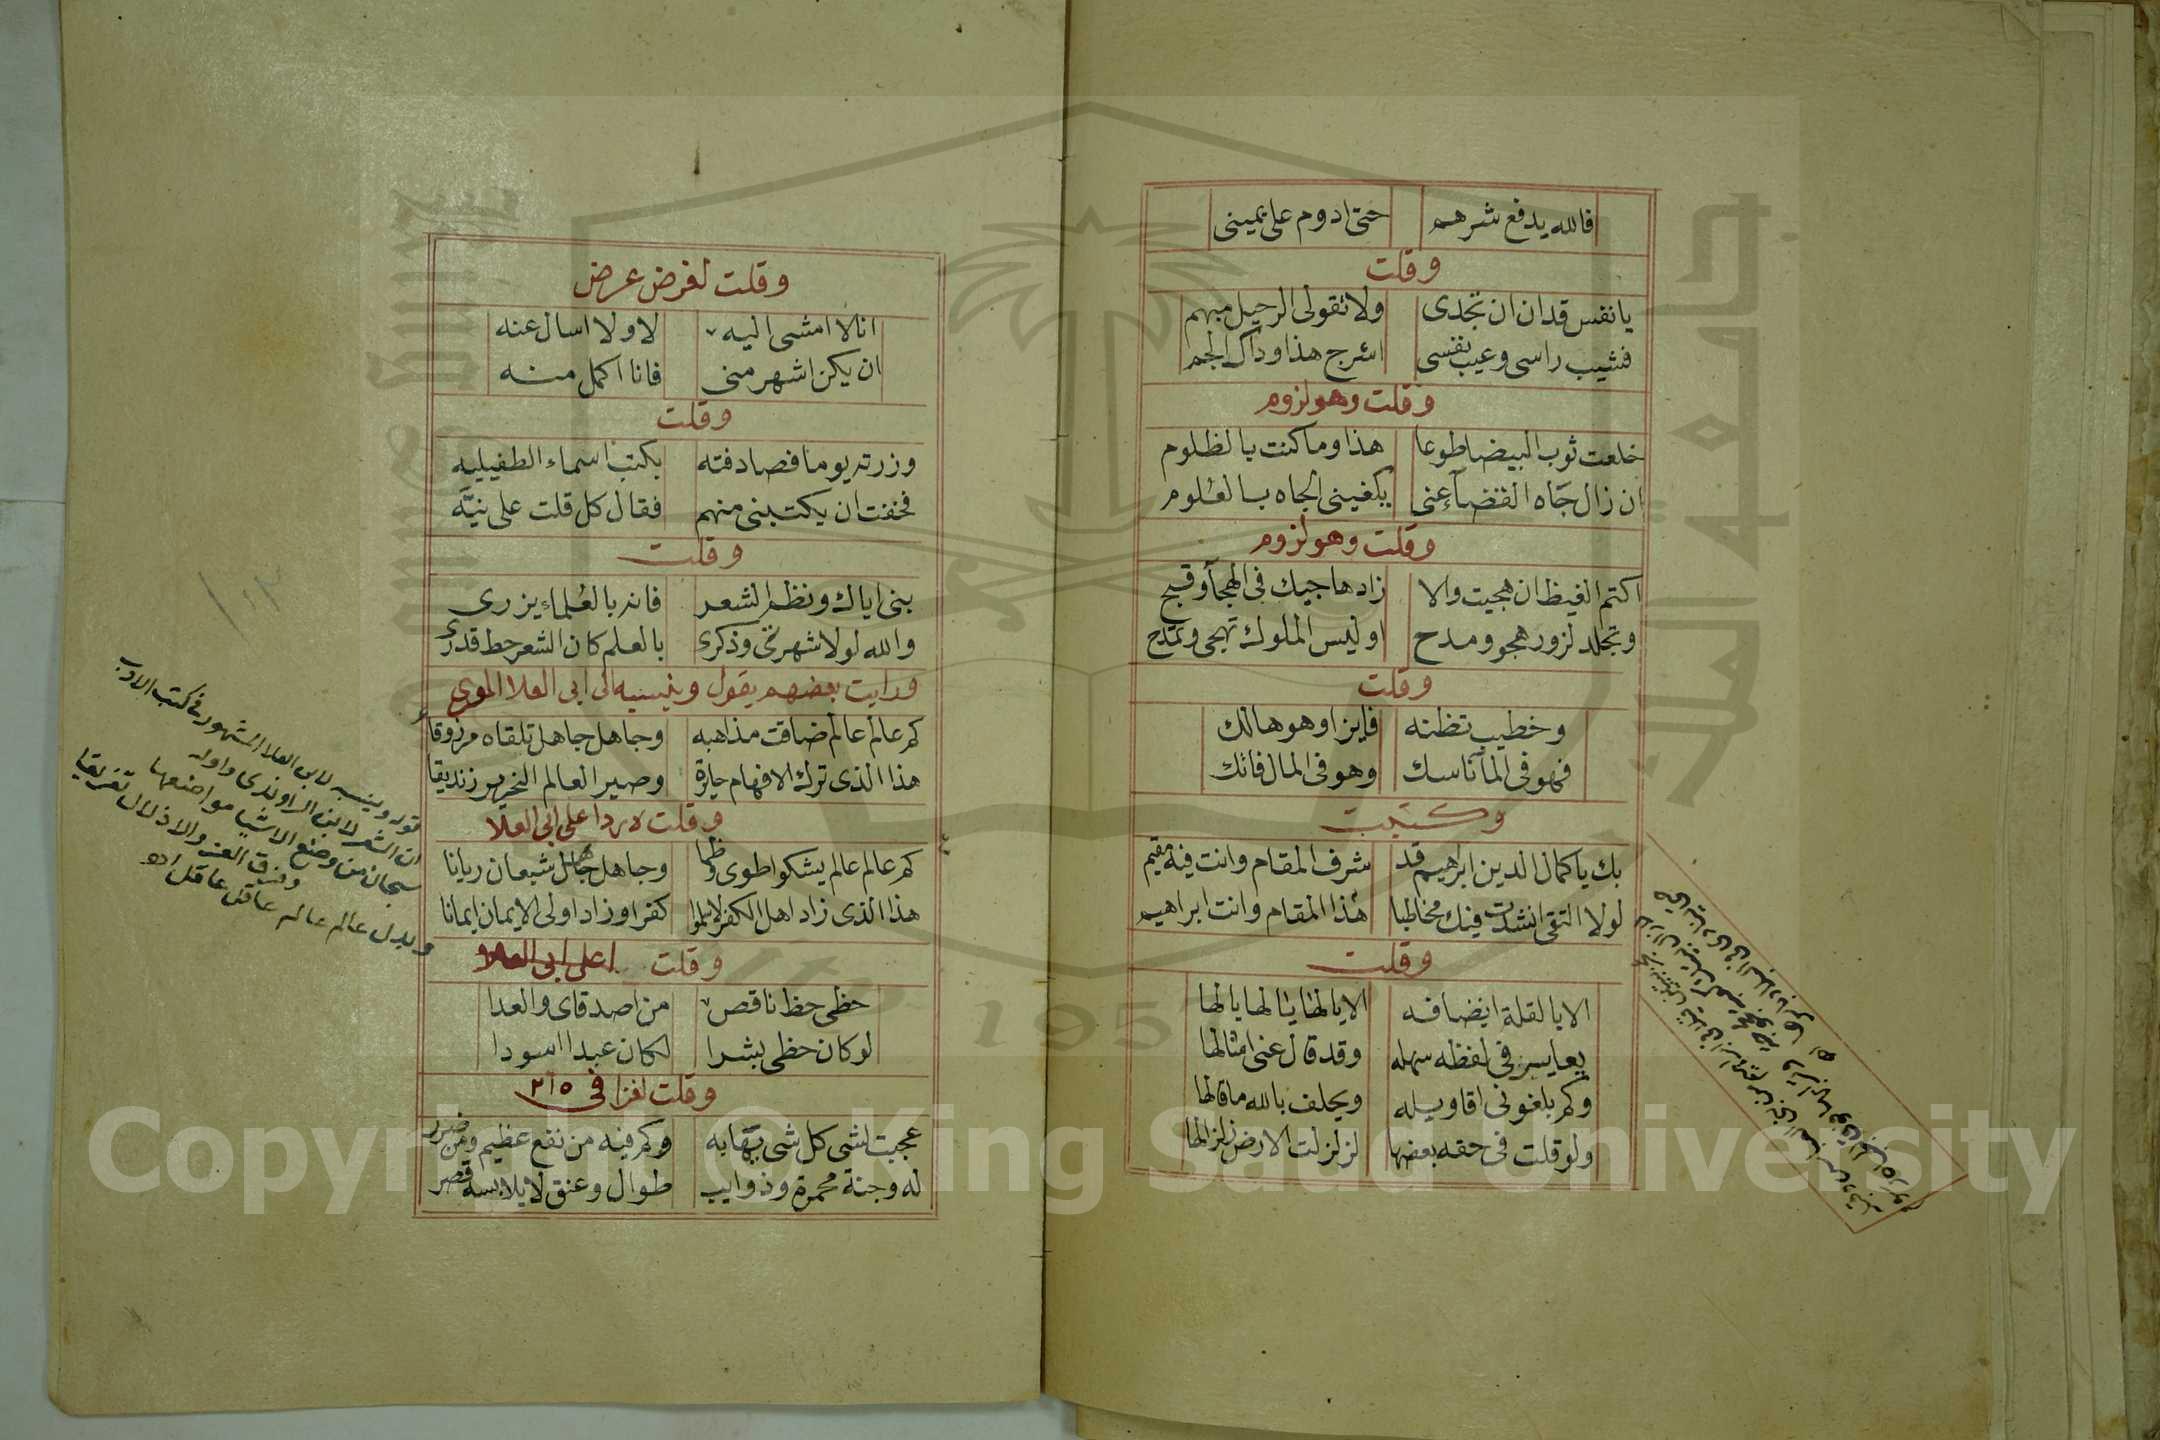 فالله يدفع شرهم حتى ادوم على يميني
وقلت
يا نفس قد ان ان تجدى ولا تقولى الرحيل مبهم
فشيب راسى وعيب نفسى اسرج هذا وذاك الجم
وقلت وهو لزوم
خلعت ثوب البيضا طوعا هذا وما كنت بالظلوم
ان زال جاه القضاء عنى يكفينى الجاه بالعلوم
وقلت وهو لزوم
اكتم الغيظ ان هجيت والا زاد هاجيك فى الهجاء وقبح
وتجلد لزور هجو ومدح اوليس الملوك تهجى وتمدح
وقلت
وخطيب تظنه فايزا وهو هالك
فهو فى الماء ناسك وهو فى المال فاتك
وكتبت
بك يا كمال الدين ابراهيم قد شرف المقام وانت فيه مقيم
لولا التقى انشدت فيك مخاطبا هذا المقام وانت ابراهيم
وقلت
الايا لقلة انصافه الايالها يالها يالها
يعايسر فى لفظه سهله وقد قال عنى امثالها
وكم بلغونى اقاويله ويحلف بالله ما قالها
ولو قلت فى حقه بعضها لزلزلت الارض زلزالها
وقلت لغرض عرض
انا لا امشى اليه لا ولا اسال عنه
ان يكن اشهر منى فانا اكمل منه
وقلت
وزرته يوما فصادفته يكتب اسماء الطفيليه
فخفت ان يكتبنى منهم فقال كل قلت على نيه
وقلت
بنى اياك ونظم الشعر فانه بالعلماء يزرى
والله لولا شهرتى وذكرى بالعلم كان الشعر حط قدرى
ورايت بعضهم يقول وينسبه الى ابى العلا المعرى
كم عالم عالم ضاقت مذاهبه وجاهل جاهل تلقاه مرزوقا
هذا الذى ترك الافهام حايرة وصير العالم النحرير زنديقا
وقلت ردا على ابى العلا
كم عالم عالم يشكو اطوى وظما وجاهل جاهل شبعان ريانا
هذا الذى زاد اهل الكفر لا سلموا كفرا وزاد اولى الايمان ايمانا
وقلت على ابى العلا
حظى حظ ناقص من اصدقاى والعدا
لو كان حظى بشرا لكان عبدا اسودا
وقلت لغزا فى ٢١٥
عجبت لشى كل شى بهابه وكم فيه من نفع عظيم ومن ضرر
له وجنة محمرة وذوايب طوال وعنق لا يلابسه قصر
قوله وينسبه لابى العلا المشهور فى كتب الادب
ان الشعر لابن الراوندى واوله
سبحان من وضع الاشيا مواضعها
وفرق العز والاذلال تفريقا
وبدل عالم عالم عاقل عاقل اه
Copyright © King Saud University
1957